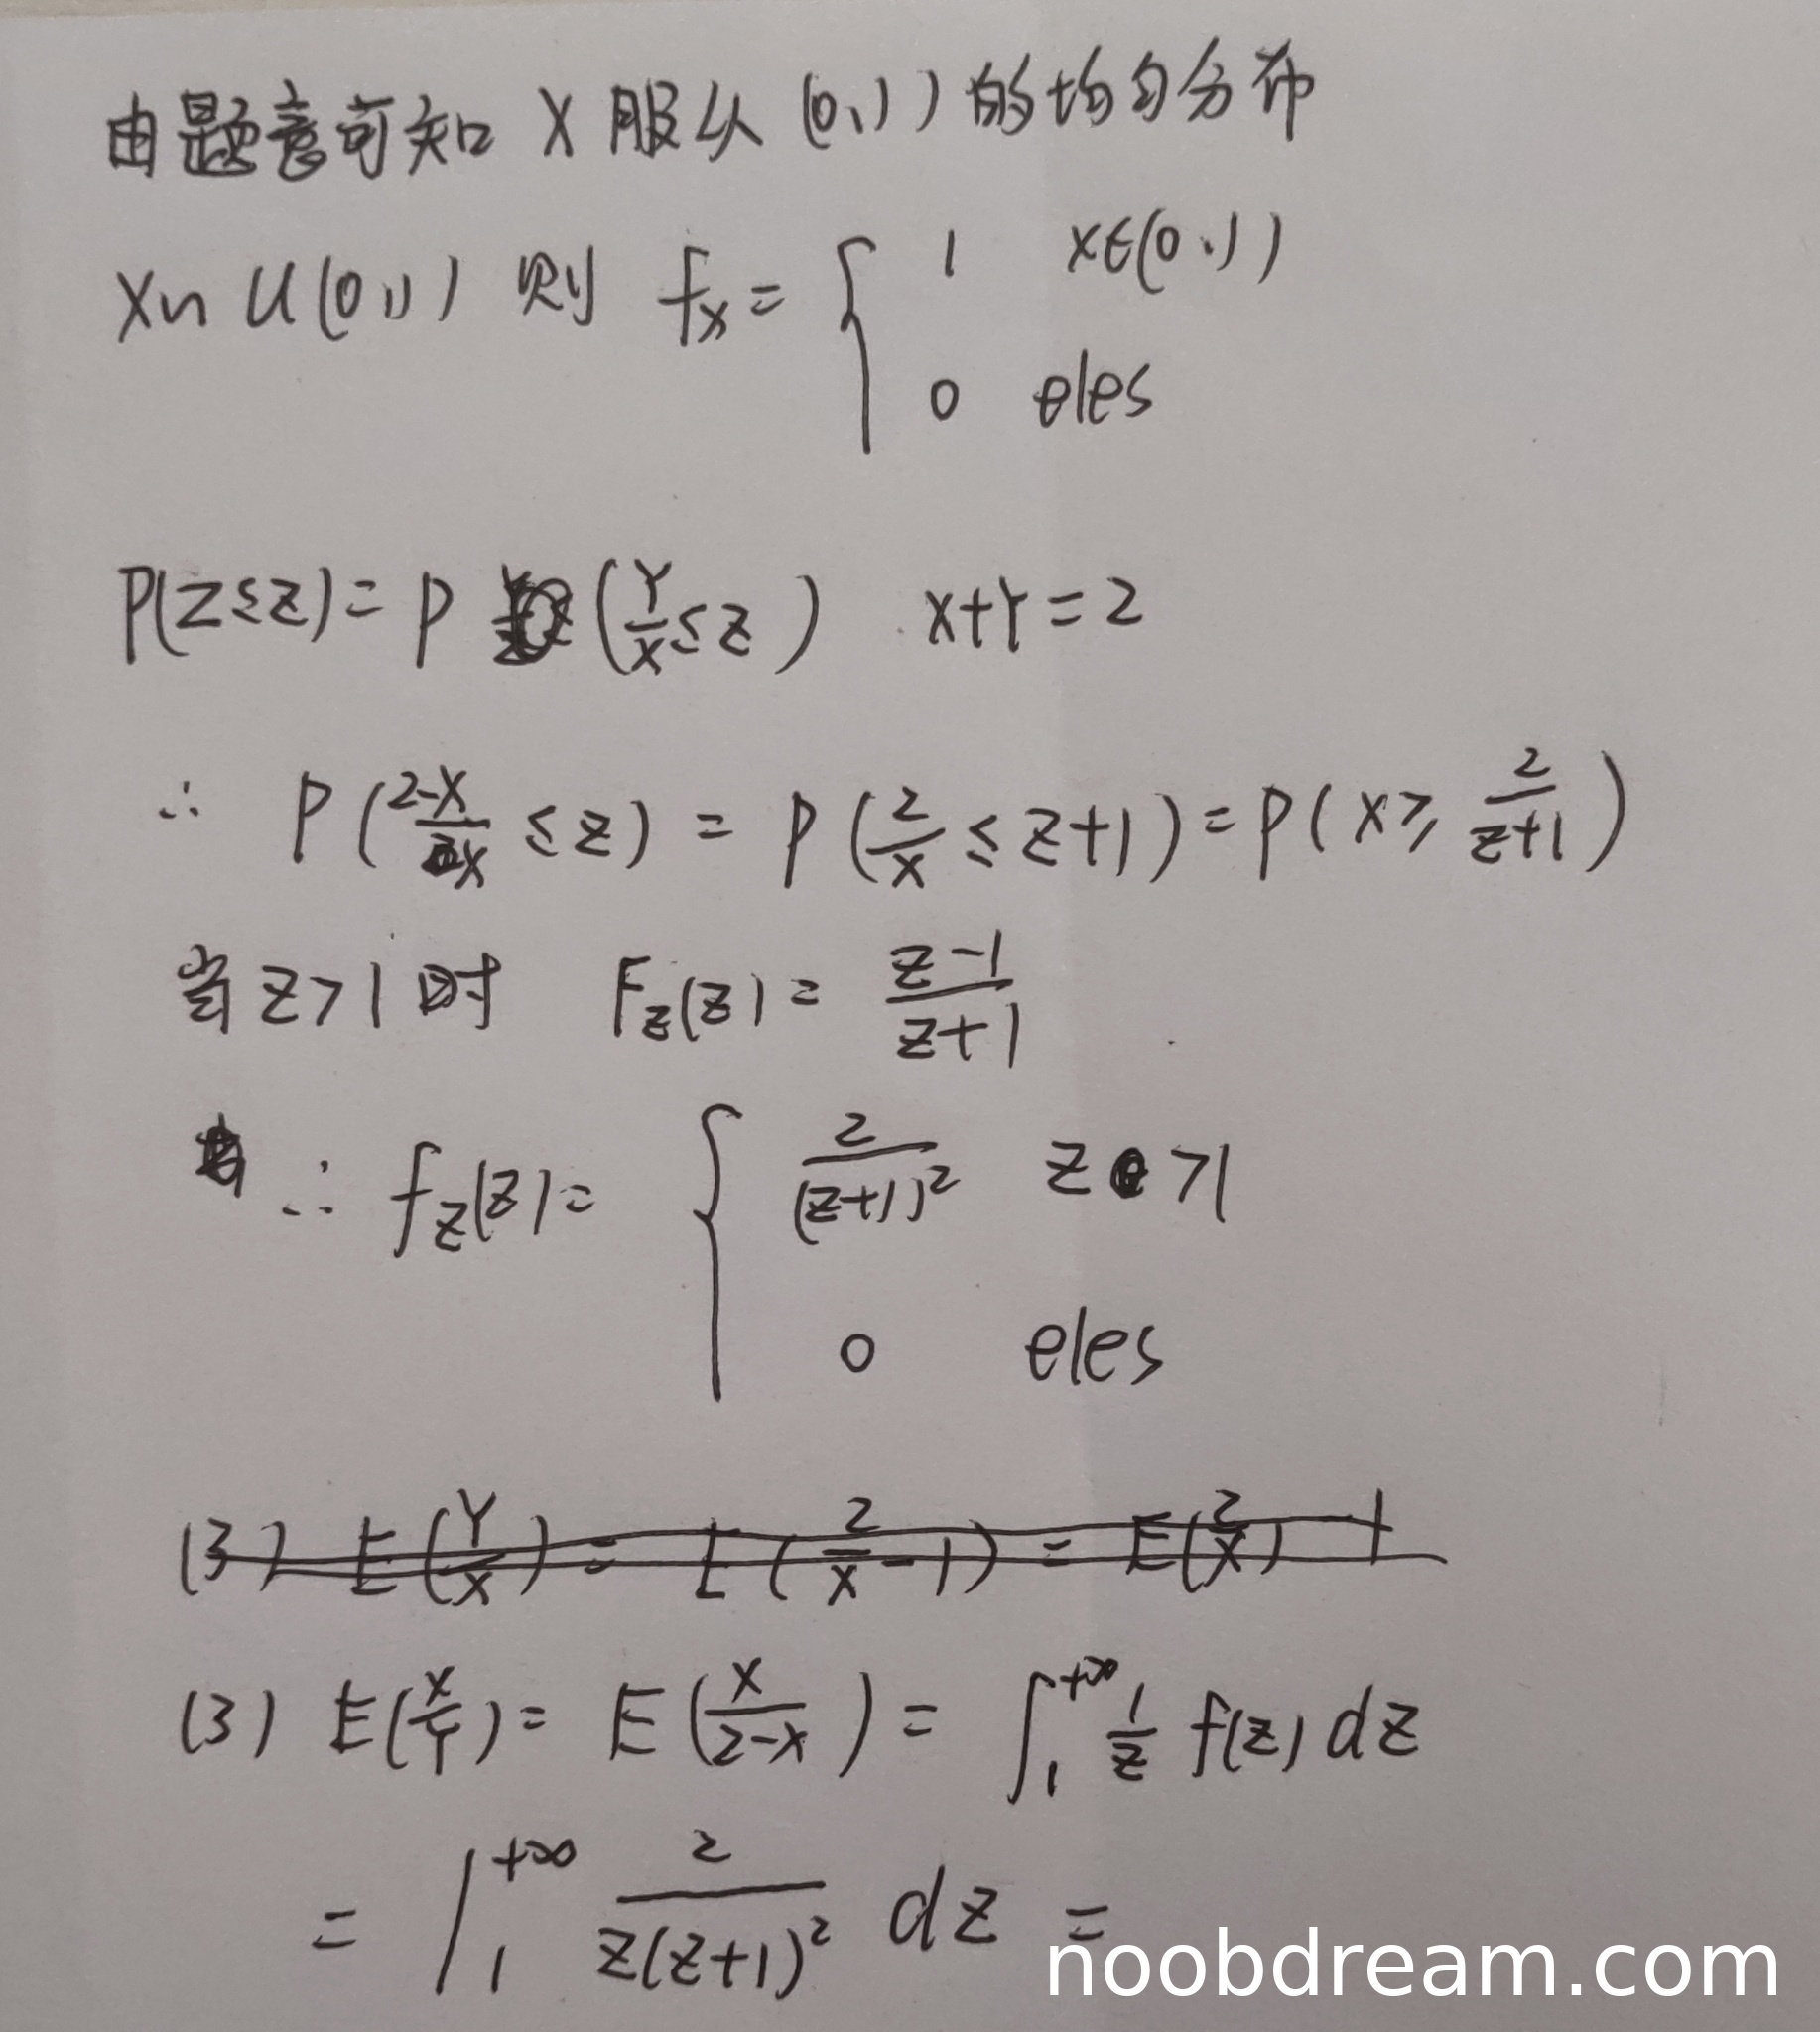 由题意可知 X 服从 (0,1) 的均匀分布
X~U(0,1) 则 fx = { 1 x∈(0,1)
0 eles
P(Z≤z) = P (Y/X ≤ z) X+Y=2
∴ P(2-X/X ≤ z) = P(2/X ≤ z+1) = P(X ≥ 2/z+1)
当 z>1 时 Fz(z) = z-1/z+1
∴ fz(z) = { 2/(z+1)² z >1
0 eles
(3) E(Y/X) = E(2/X - 1) = E(2/X) 1
(3) E(X/Y) = E(X/2-X) = ∫₁^+∞ 1/z f(z) dz
= ∫₁^+∞ 2/z(z+1)² dz =
noobdream.com